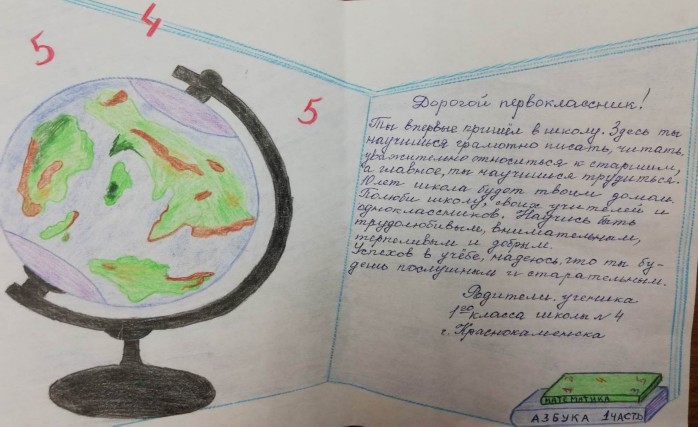 5
4
5
Дорогой первоклассник!
Ты впервые пришёл в школу. Здесь ты
научишься грамотно писать, читать,
уважительно относиться к старшим,
а главное, ты научишься трудиться.
10 лет школа будет твоим домом.
Полюби школу, своих учителей и
одноклассников. Научись быть
трудолюбивым, внимательным,
терпеливым и добрым.
Успехов в учёбе, надеюсь, что ты бу-
дешь послушным и старательным.
Родители ученика
1го класса школы №4
г. Краснокаменска
МАТЕМАТИКА
АЗБУКА 1 ЧАСТЬ